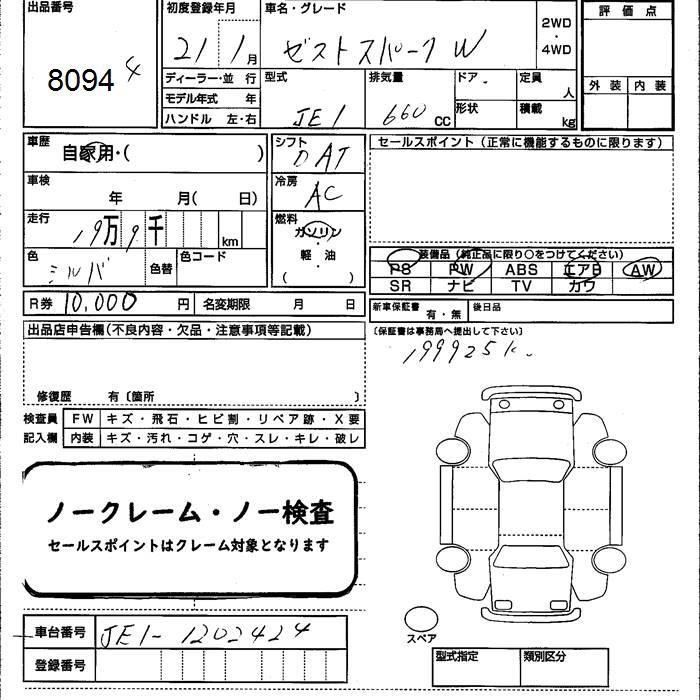 出品番号 初度登録年月 車名・グレード 評価点
8094 4 21 1月 ゼストスパーク W 2WD・4WD
ディーラー・並行 型式 排気量 ドア 定員 人 外装 内装
モデル年式 年 JE1 660 CC 形状 積載 kg
ハンドル 左・右
車歴 自家用・( ) シフト DAT セールスポイント (正常に機能するものに限ります)
車検 年 月( 日) 冷房 AC
走行 19万9千 km 燃料 ガソリン・軽油 ( )
色 シルバ 色替 色コード 装備品 (純正品に限り○をつけてください)
PS PW ABS エアB AW
SR ナビ TV カワ
R券 10,000 円 名変期限 月 日 新車保証書 有・無 後日品
出品店申告欄 (不良内容・欠品・注意事項等記載) (保証書は事務局へ提出して下さい)
199925k.
修復歴 有〔箇所 〕
検査員 FW キズ・飛石・ヒビ割・リペア跡・X要
記入欄 内装 キズ・汚れ・コゲ・穴・スレ・キレ・破レ
ノークレーム・ノー検査
セールスポイントはクレーム対象となります
車台番号 JE1-1202424 スペア
登録番号 型式指定 類別区分